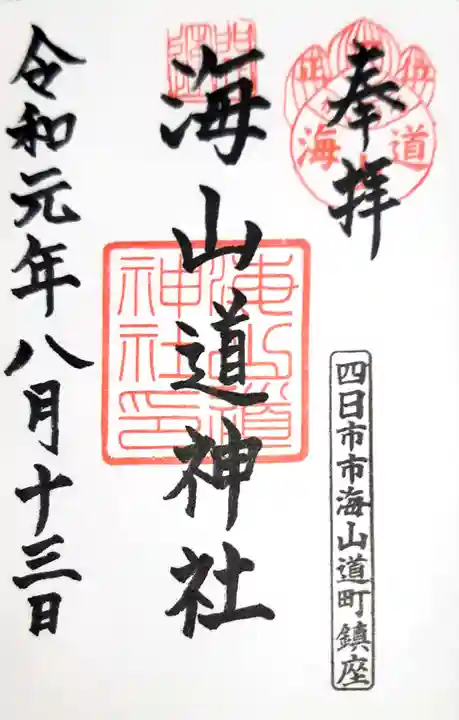 奉拝
海道
四日市市海山道町鎮座
海山道神社
海山道神社印
令和元年八月十三日